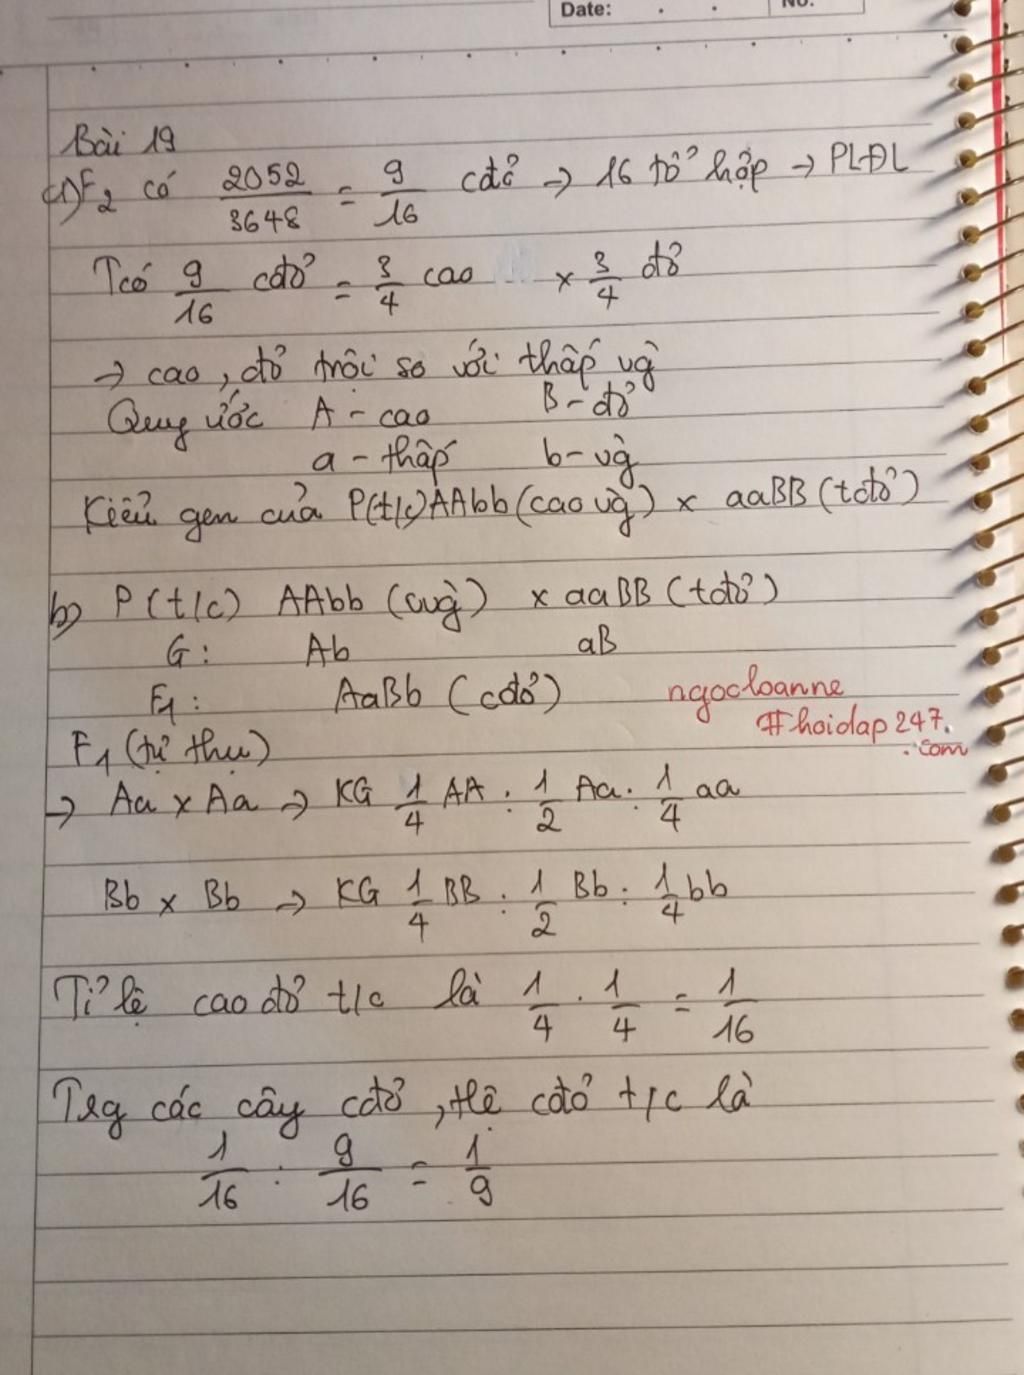 Date:
No.
Bài 19
a) F2 có 2052/3648 = 9/16 cđỏ → 16 tổ hợp → PLĐL
Tcó 9/16 cđỏ = 3/4 cao × 3/4 đỏ
→ cao, đỏ trội so với thấp vg̀
Quy ước A - cao B - đỏ
a - thấp b - vg̀
Kiểu gen của P(t/c) AAbb (cao vg̀) × aaBB (tđỏ)
b) P (t/c) AAbb (cvg̀) × aaBB (tđỏ)
G: Ab aB
F1: AaBb (cđỏ)
ngocloanne
#hoidap247.
.com
F1 (tự thụ)
→ Aa × Aa → KG 1/4 AA : 1/2 Aa : 1/4 aa
Bb × Bb → KG 1/4 BB : 1/2 Bb : 1/4 bb
Tỉ lệ cao đỏ t/c là 1/4 . 1/4 = 1/16
Trg các cây cđỏ, tlệ cđỏ t/c là
1/16 : 9/16 = 1/9